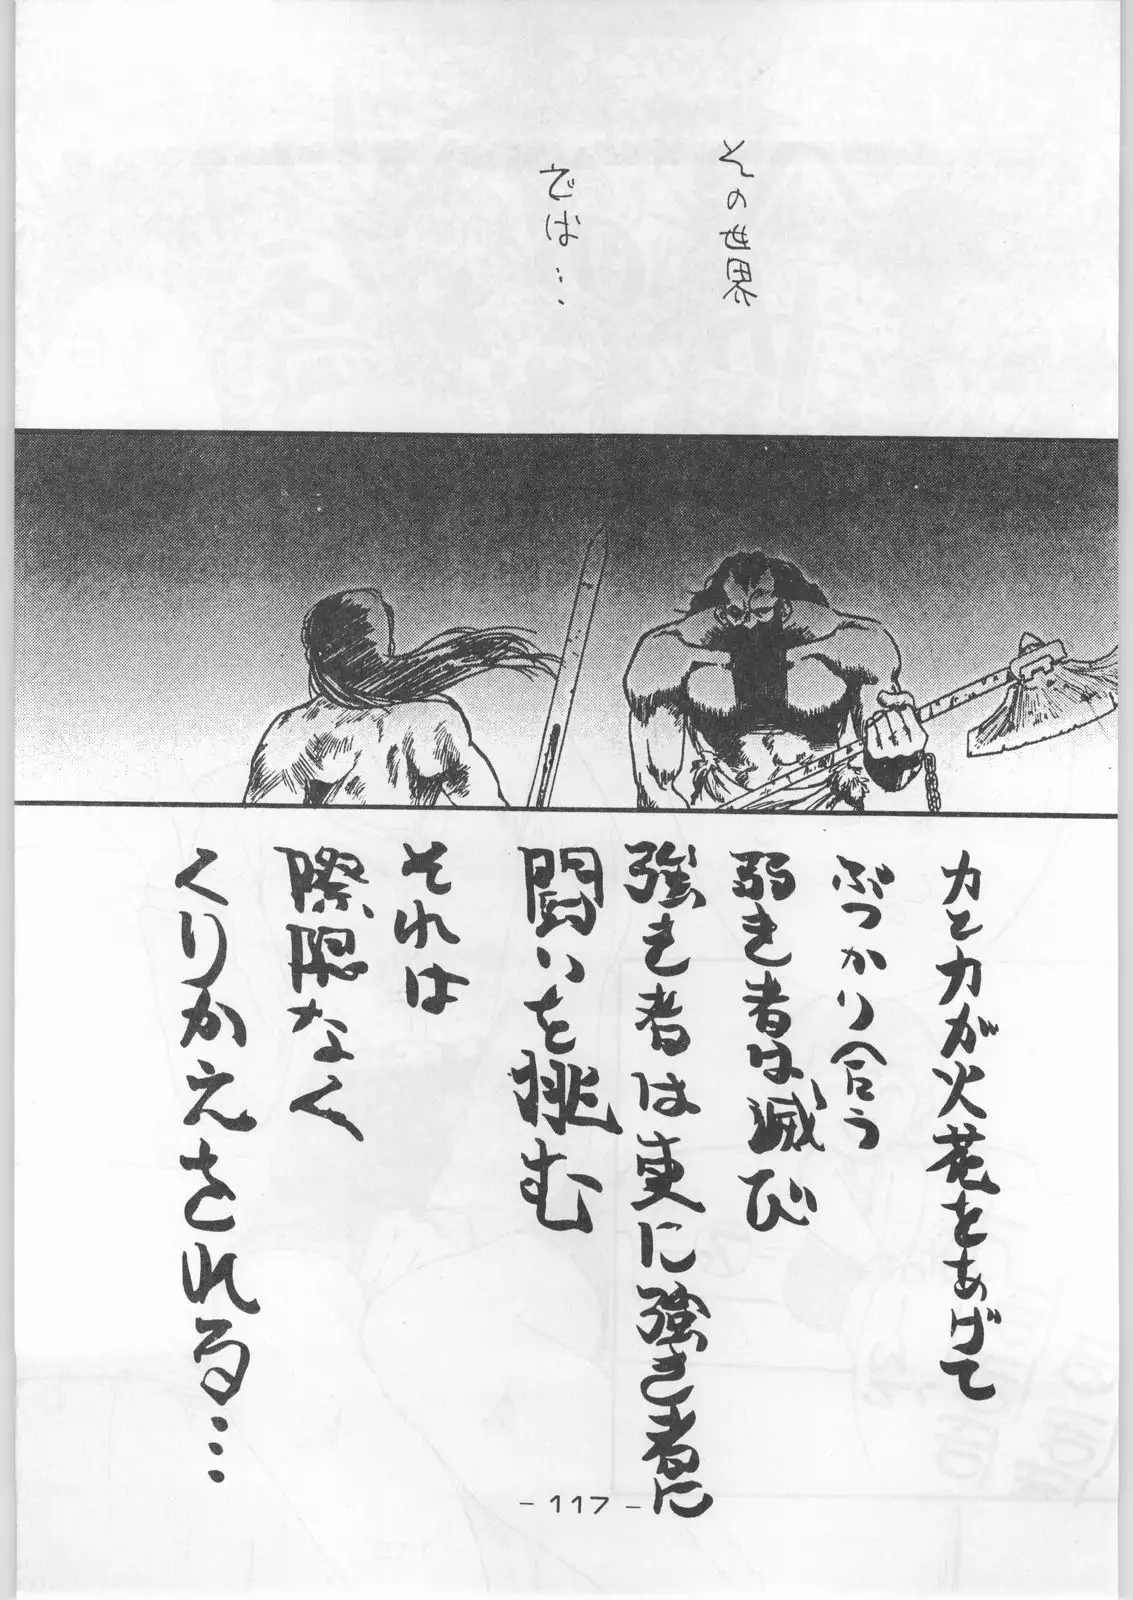 その世界
では…
力と力が火花をあげて
ぶつかり合う
弱き者は滅び
強き者は更に強き者に
闘いを挑む
それは
際限なく
くりかえされる…
- 117 -